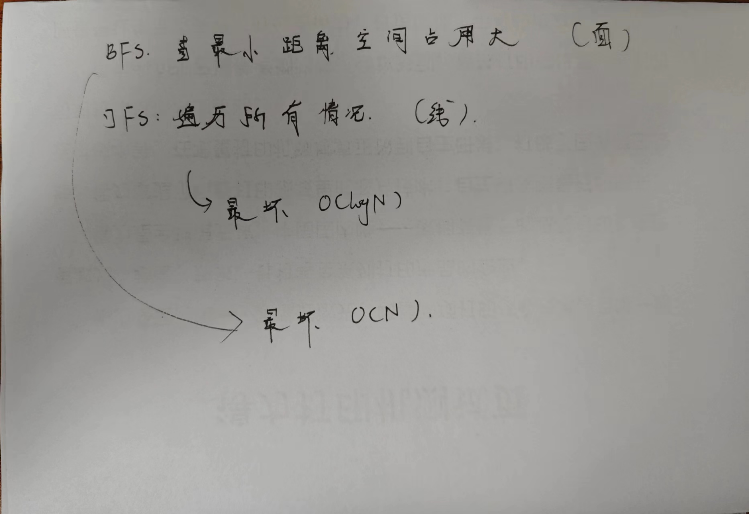 BFS. 最小距离 空间占用大 (面)
DFS: 遍历所有情况. (线).
最坏 O(logN)
最坏 O(N).